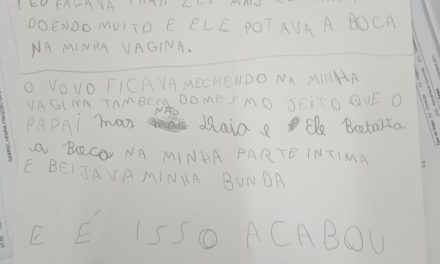 DOENDO MUITO E ELE POTAVA A BOCA
NA MINHA VAGINA.
O VOVO FICAVA MECHENDO NA MINHA
VAGINA TAMBEM DO MESMO JEITO QUE O
PAPAI mas NÃO e Ele
a Boca NA MINHA PARTE INTIMA
E BEIJAVA MINHA BUNDA
E É ISSO ACABOU